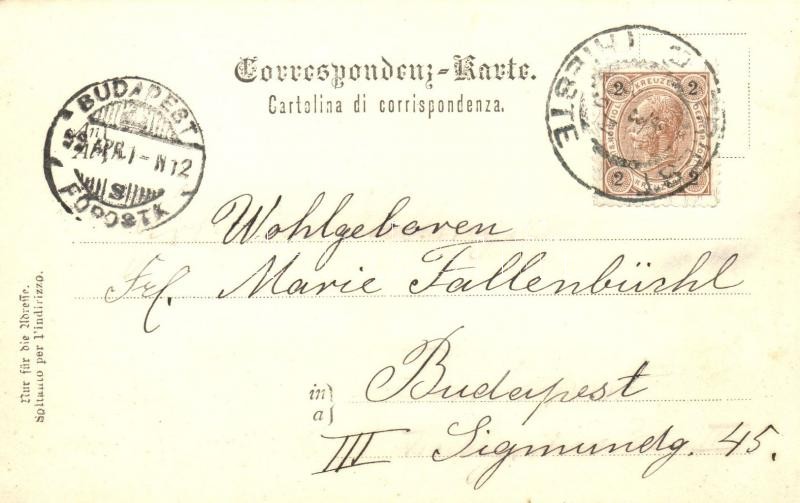 Correspondenz-Karte.
Cartolina di corrispondenza.
BUDAPEST
99 APR. 1 - N12
S
FŐPOSTA
TRIESTE
2 KREUZER 2
2 2
Wohlgeboren
Frl. Marie Fallenbüchl
in
a)
Budapest
III Sigmundg. 45.
Nur für die Adresse.
Soltanto per l'indirizzo.